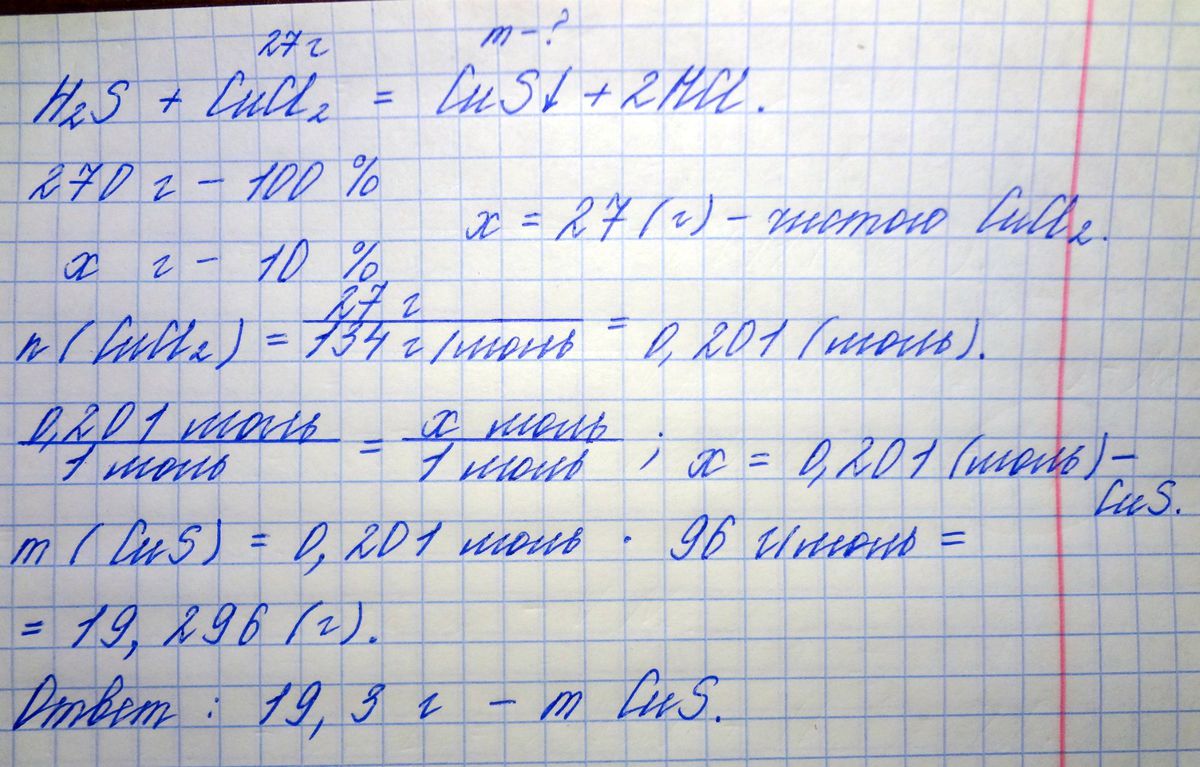 27 г m - ?
H₂S + CuCl₂ = CuS↓ + 2HCl.
270 г – 100 %
x = 27 (г) – чистого CuCl₂.
x г – 10 %
27 г
n (CuCl₂) = 134 г/моль = 0,201 (моль).
0,201 моль = x моль ; x = 0,201 (моль) –
1 моль 1 моль
CuS.
m (CuS) = 0,201 моль · 96 г/моль =
= 19,296 (г).
Ответ : 19,3 г – m CuS.